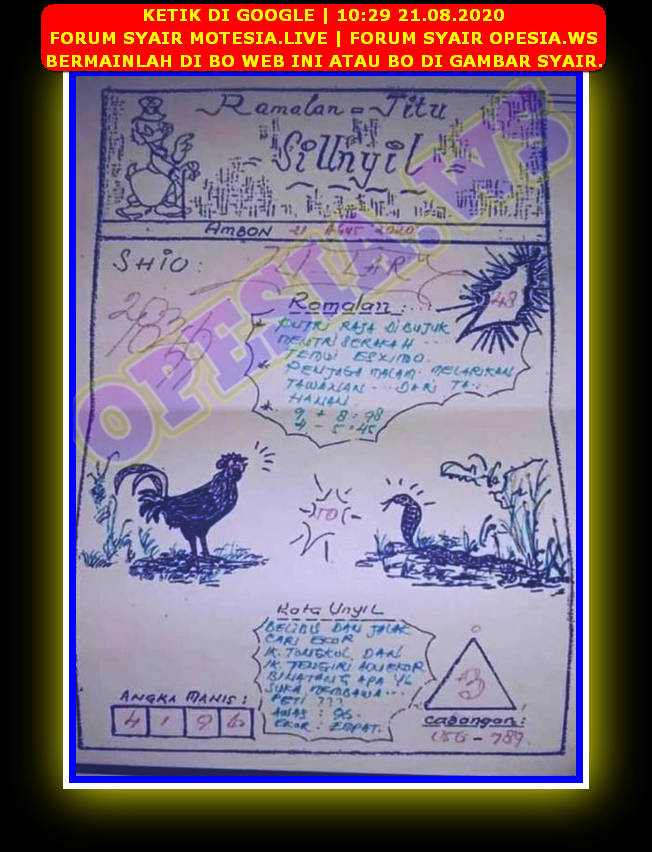 KETIK DI GOOGLE | 10:29 21.08.2020
FORUM SYAIR MOTESIA.LIVE | FORUM SYAIR OPESIA.WS
BERMAINLAH DI BO WEB INI ATAU BO DI GAMBAR SYAIR.
Ramalan = Jitu
SiUnyil
AMBON 21 AGUS 2020
SHIO:
48
Ramalan:
* PUTRI RAJA DIBUJUK
MENTRI SERAKAH
TEMUI ESXIMO.
* PENJAGA MALAM MELARIKAN
TAWANAN ... DARI TA..
HANAN.
* 9 + 8 : 98
4 - 5 : 45
OPESIA.WS
TO
Kata UnyiL
BELIBIS DAN JALAK
CARI EKOR
IK. TONGKOL DAN
IK. TENGIRI
BINATANG APA YG
SUKA MEMBAWA...
PETI ???
AWAS : 96.
EKOR : EMPAT.
ANGKA MANIS :
4 1 9 6
3
Cabangan:
056 - 789.